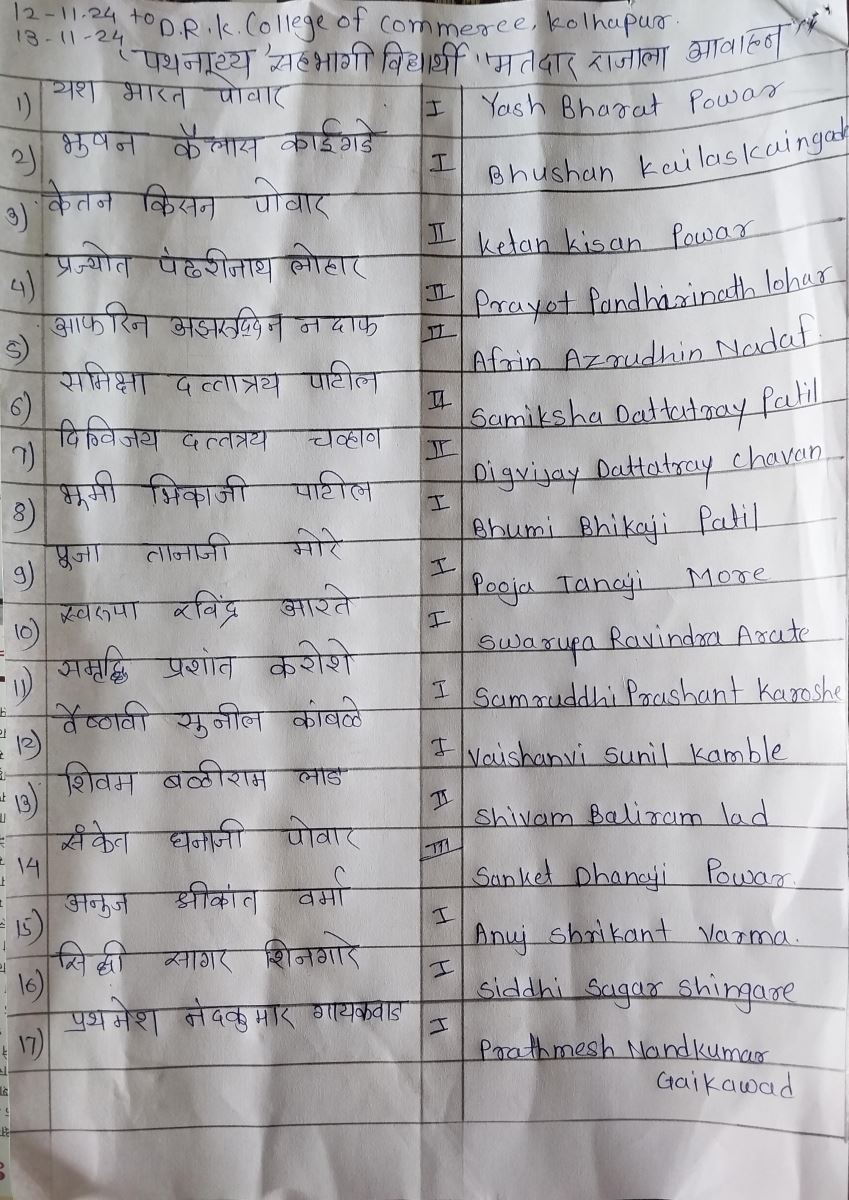 12-11-24 to D.R.K. College of commerce, Kolhapur.
13-11-24
'पथनाट्य' सहभागी विद्यार्थी "मतदार राजाला आवाहन"
1) यश भारत पोवार I Yash Bharat Powar
2) भुषन कैलास काईंगडे I Bhushan Kailas Kaingade
3) केतन किसन पोवार II Ketan Kisan Powar
4) प्रज्योत पंढरीनाथ लोहार II Prayot Pandharinath lohar
5) आफरिन अझरुद्दिन नदाफ II Afrin Azrudhin Nadaf.
6) समिक्षा दत्तात्रय पाटील II Samiksha Dattatray Patil
7) दिग्विजय दत्तत्रय चव्हाण II Digvijay Dattatray Chavan
8) भूमी भिकाजी पाटील I Bhumi Bhikaji Patil
9) पुजा तानाजी मोरे I Pooja Tanaji More
10) स्वरुपा रविंद्र आरते I Swarupa Ravindra Arate
11) समृद्धि प्रशांत करोशे I Samruddhi Prashant Karoshe
12) वैष्णवी सुनील कांबळे I Vaishanvi Sunil Kamble
13) शिवम बळीराम लाड II Shivam Baliram lad
14 संकेत धनाजी पोवार III Sanket Dhanaji Powar.
15) अनुज श्रीकांत वर्मा I Anuj Shrikant Varma.
16) सिद्धी सागर शिनगारे I Siddhi Sagar Shingare
17) प्रथमेश नंदकुमार गायकवाड I Prathmesh Nandkumar
Gaikawad